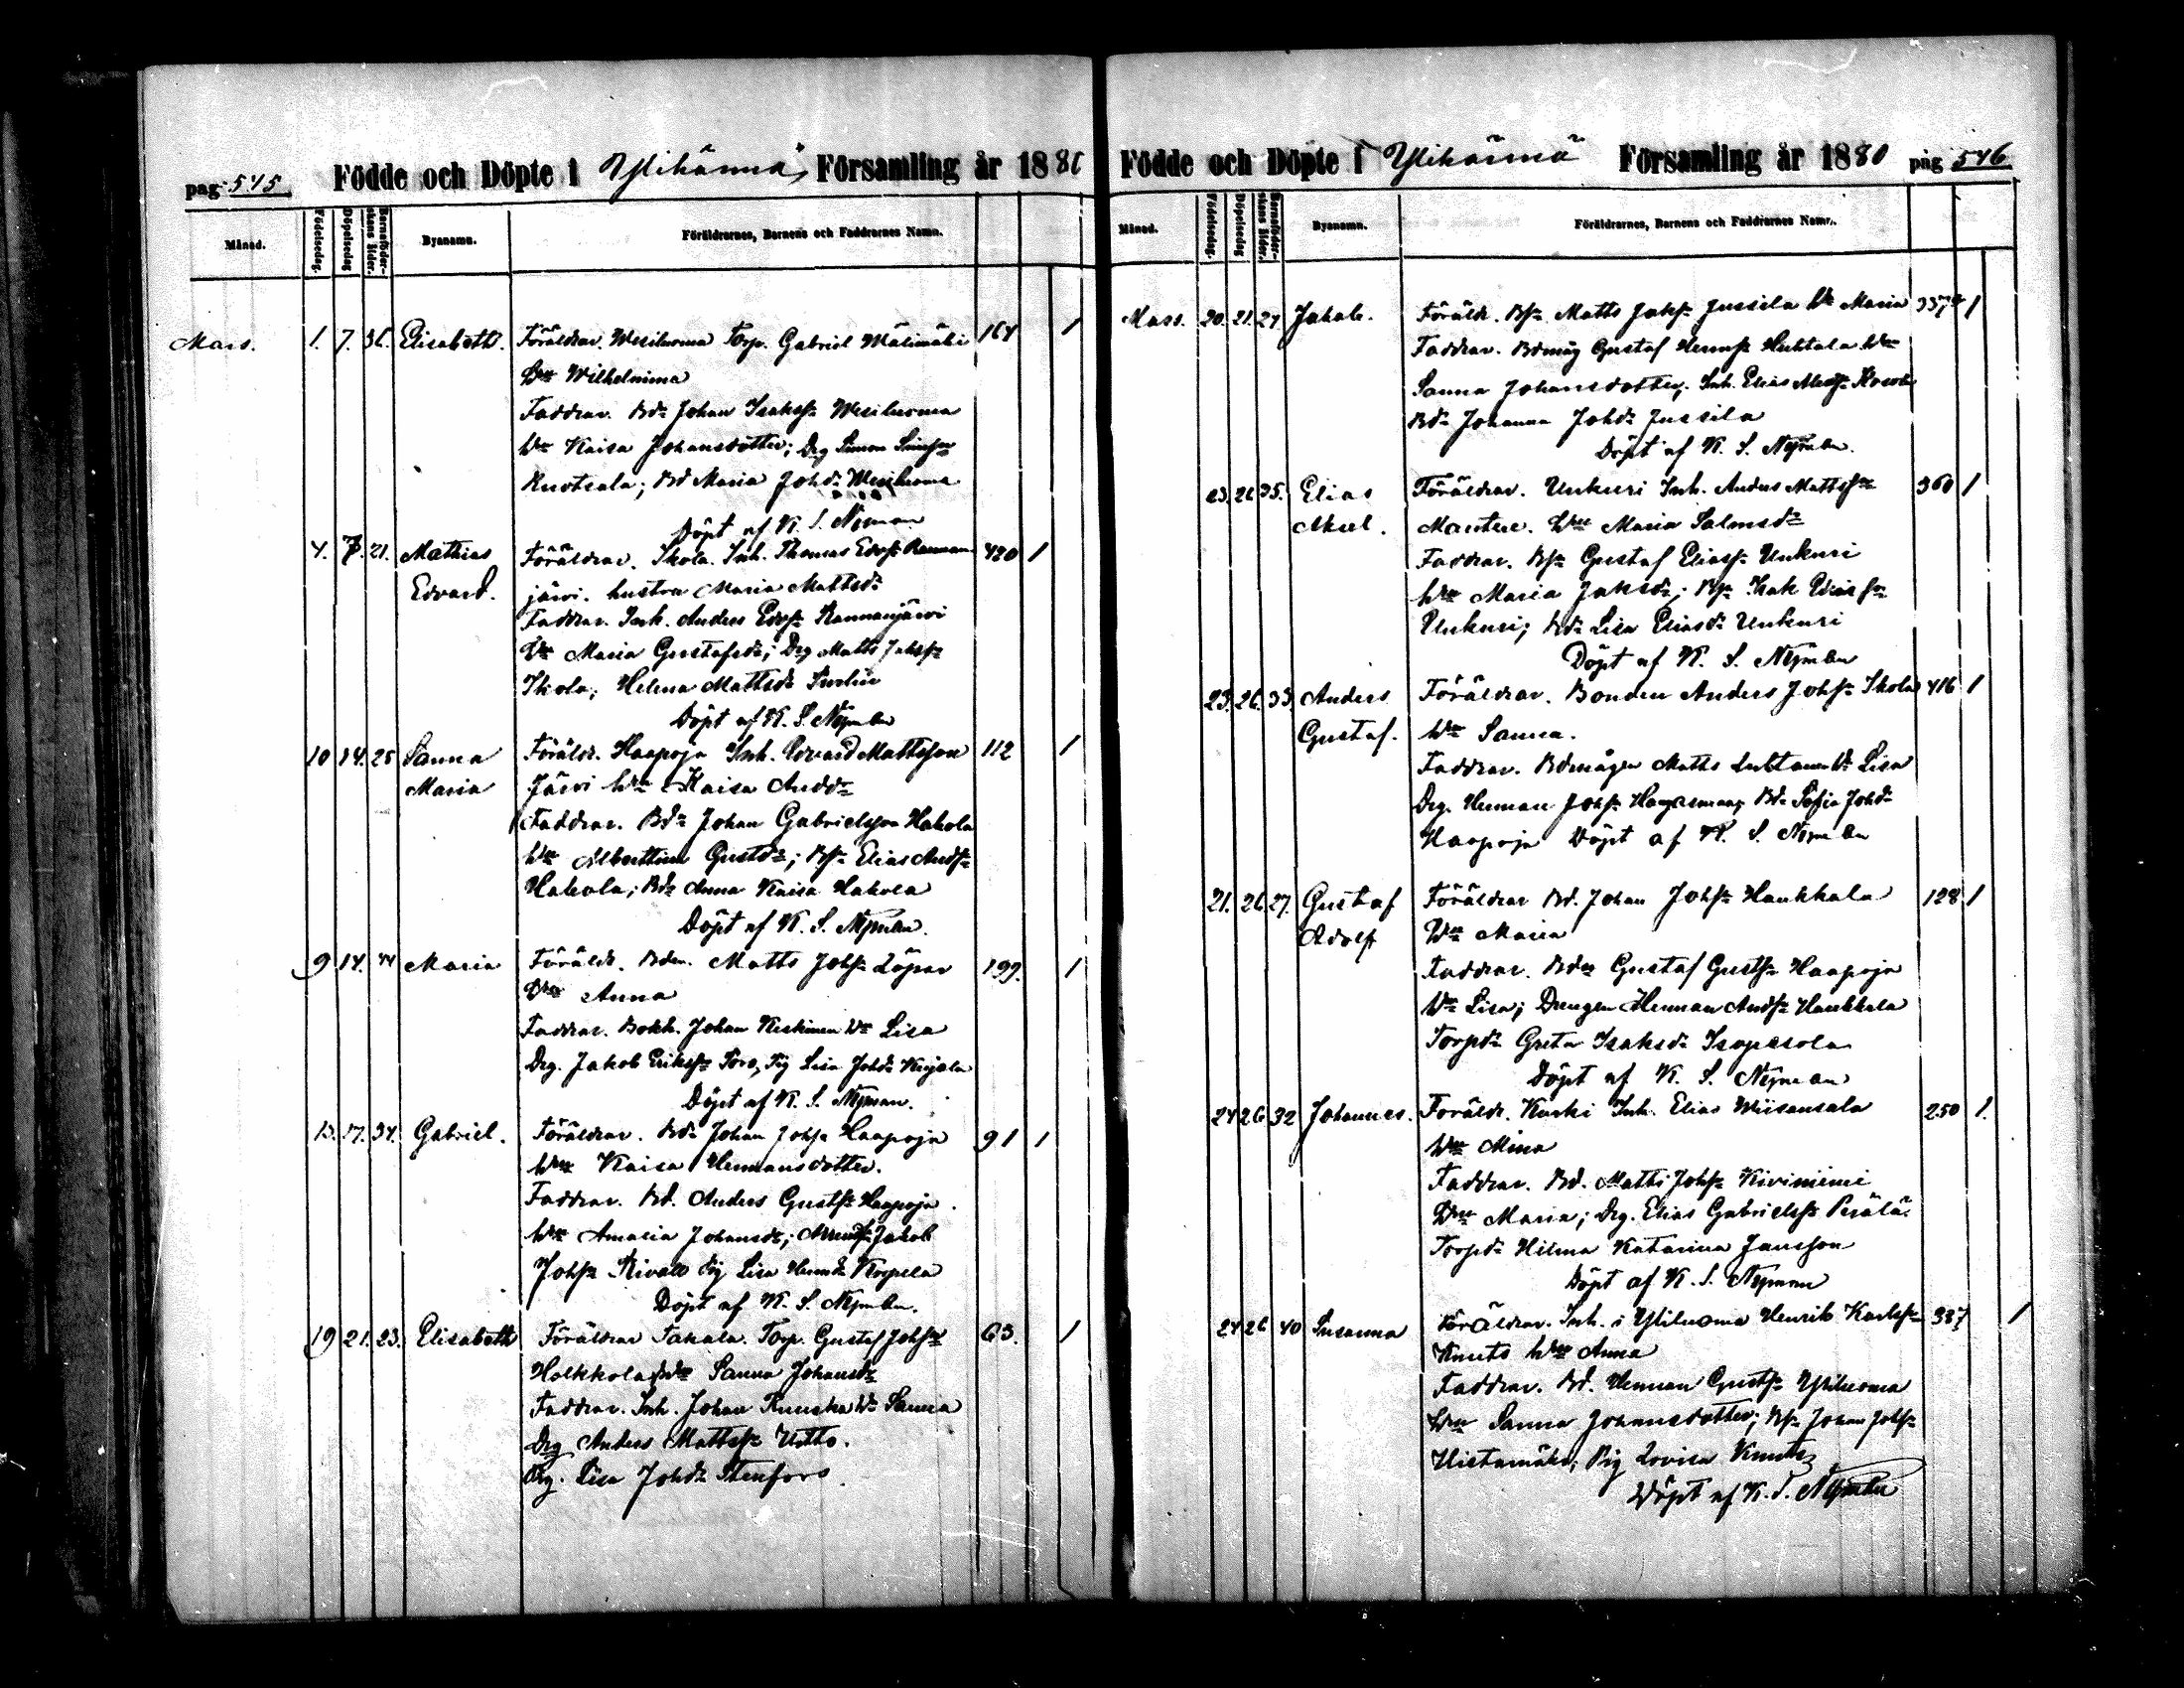 pag. 545 Födde och Döpte i Ylihärmä Församling år 1880
Månad. Födelsedag. Döpelsedag Barnaföderskans ålder. Byanamn. Föräldrarnes, Barnens och Faddrarnes Namn.
Mars. 1. 7. 36. Elisabeth. Föräldrar. Wesiluoma Torp. Gabriel Mälimäki 164 1
Hu Wilhelmina
Faddrar. Bd. Johan Isakss. Wesiluoma
Hu Kaisa Johansdotter; Drg Simon Simss
Ruotsala; Bd Maria Johd. Wesiluoma
Döpt af K. S. Nyman
4. 7. 21. Mathias Föräldrar. Ikola. Inh. Thomas Edvss. Rannan- 420 1
Edvard. järvi. hustru Maria Mattsd.
Faddrar. Inh. Anders Edvss. Rannanjärvi
Hu Maria Gustafsd.; Drg Matts Jakss.
Ikola; Helena Mattsd.
Döpt af K. S. Nyman
10 14. 25 Sanna Föräldr. Haapoja Inh. Edvard Mattsson 112 1
Maria Järvi hu Kaisa Andd.
Faddrar. Bd. Johan Gabrielsson Hakola
Hu Albertina Gustd.; Bss. Elias Andss.
Hakola; Bd. Anna Kaisa Hakola
Döpt af K. S. Nyman.
9 14. 44 Maria Föräldr. Bdn. Matts Johss. Löpar 199. 1
Hu Anna
Faddrar. Bokh. Johan Keskinen Hu Lisa
Drg. Jakob Erikss. Pig Lisa Johd.
Döpt af K. S. Nyman.
13. 17. 34. Gabriel. Föräldrar. Bd. Johan Johss. Haapoja 91 1
hu Kaisa Hermansdotter.
Faddrar. Bd. Anders Gustss. Haapoja.
hu Amalia Johansd.; Jakob
Johss. Pig Lisa Hermd. Korpela
Döpt af K. S. Nyman.
19 21. 23. Elisabeth Föräldrar Takala. Torp. Gustaf Johss. 63. 1
Holkkola, Hu Sanna Johansd.
Faddrar. Inh. Johan Hu Sanna
Drg Anders Mattss. Utto.
Pig. Lisa Johd. Stenfors.
Födde och Döpte i Ylihärmä Församling år 1880 pag 546
Månad. Födelsedag. Döpelsedag Barnaföderskans ålder. Byanamn. Föräldrarnes, Barnens och Faddrarnes Namn.
Mars. 20. 21. 27 Jakob. Föräldr. Bss. Matts Jakss. Jussila Hu Maria 337 1
Faddrar. Bdmåg Gustaf Hermss. Huhtala Hu
Sanna Johansdotter; Inh. Elias
Bd. Johanna Johd. Jussila
Döpt af K. S. Nyman.
23. 26 35. Elias Föräldrar. Unkuri Inh. Anders Mattss. 360 1
Aksel. Mantere. Hu Maria Salmsd.
Faddrar. Bss. Gustaf Eliass. Unkuri
hu Maria Jaksd.; Bss. Isak Eliass.
Unkuri; Bd. Lisa Eliasd. Unkuri
Döpt af K. S. Nyman
23. 26. 33. Anders Föräldrar. Bonden Anders Johss. Ikola 416 1
Gustaf. Hu Sanna.
Faddrar. Bdmågen Matts Luhtanen Hu Lisa
Drg. Herman Johss. Bd. Sofia Johd.
Haapoja Döpt af K. S. Nyman
21. 26. 27. Gustaf Föräldrar Bd. Johan Johss. Haukkala 128 1
Adolf Hu Maria
Faddrar. Bdn Gustaf Gustss. Haapoja
Hu Lisa; Drengen Herman Andss. Haukkala
Torpd. Greta Isaksd. Isopesola
Döpt af K. S. Nyman
24 26 32 Johannes. Föräldr. Koski Inh. Elias Wiisansala 250 1.
Hu Mina
Faddrar. Bd. Matts Johss. Kiviniemi
Hu Maria; Drg. Elias Gabrielss. Perälä.
Torpd. Hilma Katarina Jansson
Döpt af K. S. Nyman
24 26 40 Susanna Föräldrar. Inh. i Yliluoma Henrik Karlss. 387 1
Knuts hu Anna
Faddrar. Bd. Herman Gustss. Yliluoma
Hu Sanna Johansdotter; Bss. Johan Johss.
Histamäki; Pig Lovisa Knuts
Döpt af K. S. Nyman